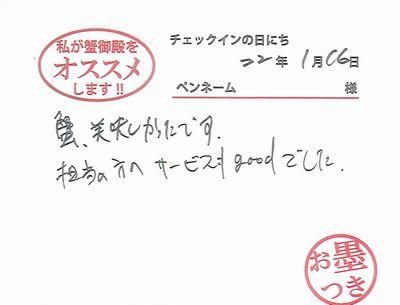 私が蟹御殿を
オススメ
します!!
チェックインの日にち
22年 1月06日
ペンネーム 様
蟹、美味しかったです.
担当の方へ サービスもgoodでした.
お墨
つき